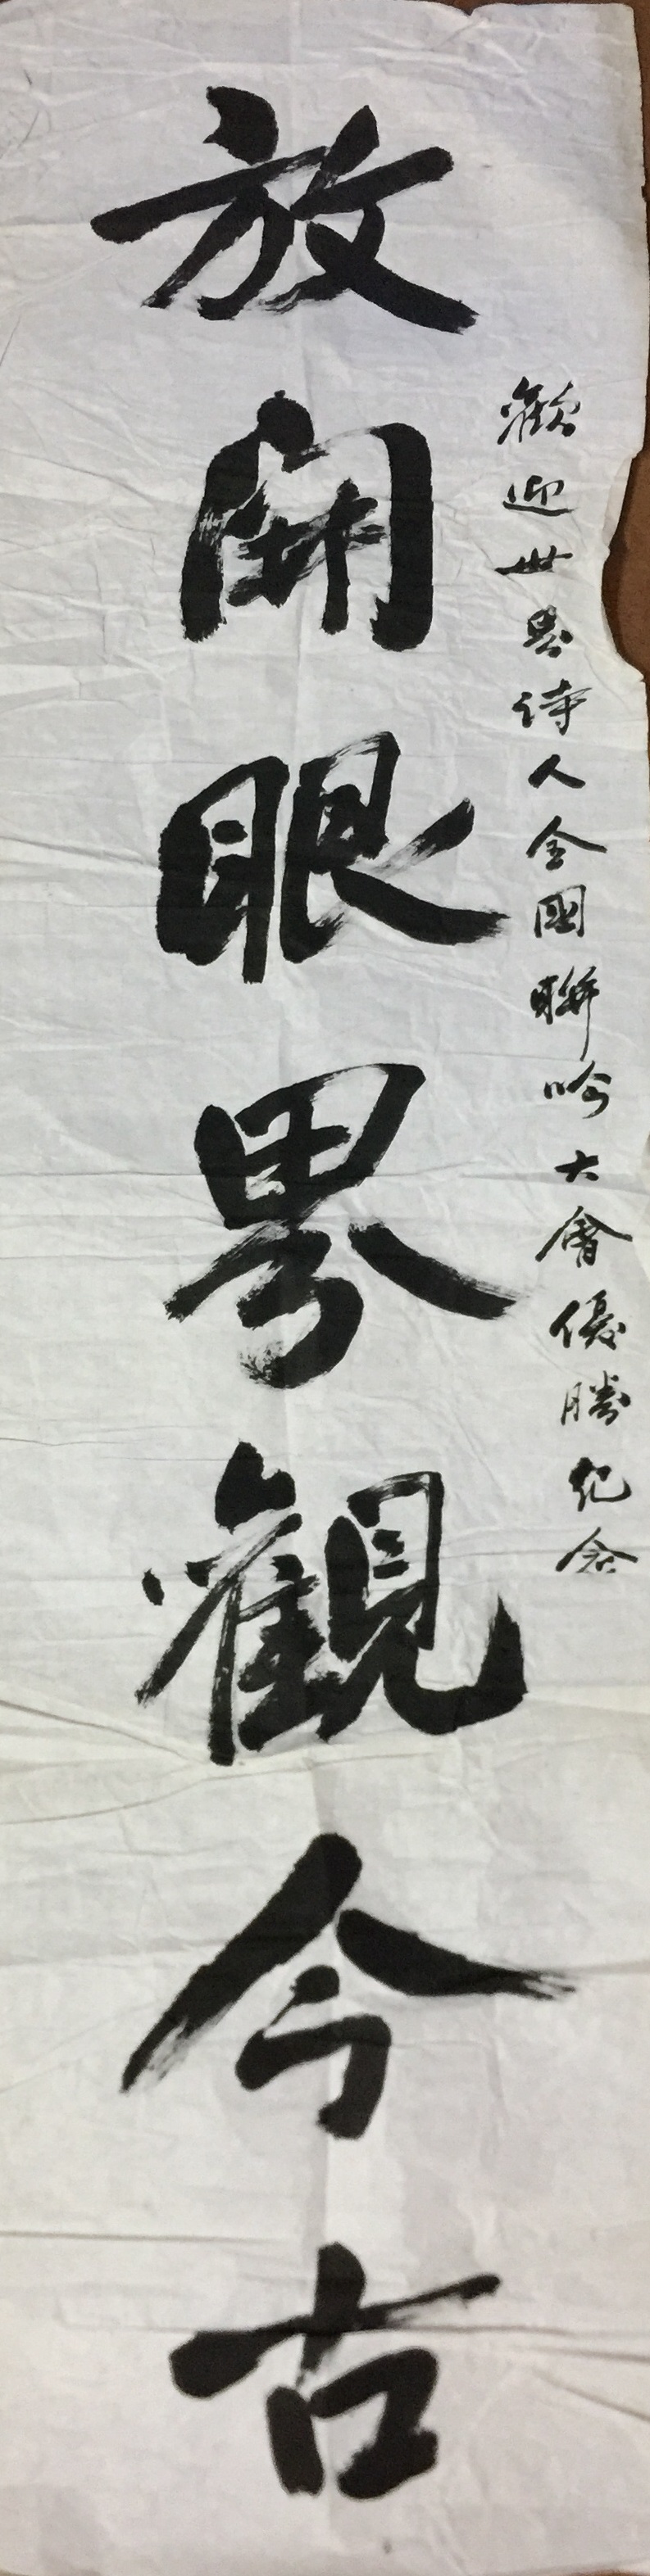 歡迎世界詩人全國聯吟大會優勝紀念
放開眼界觀今古